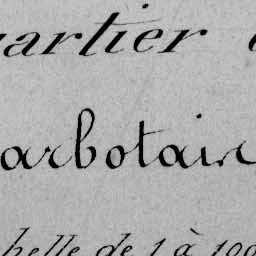 artier
arbotain
helle de 1 à 100